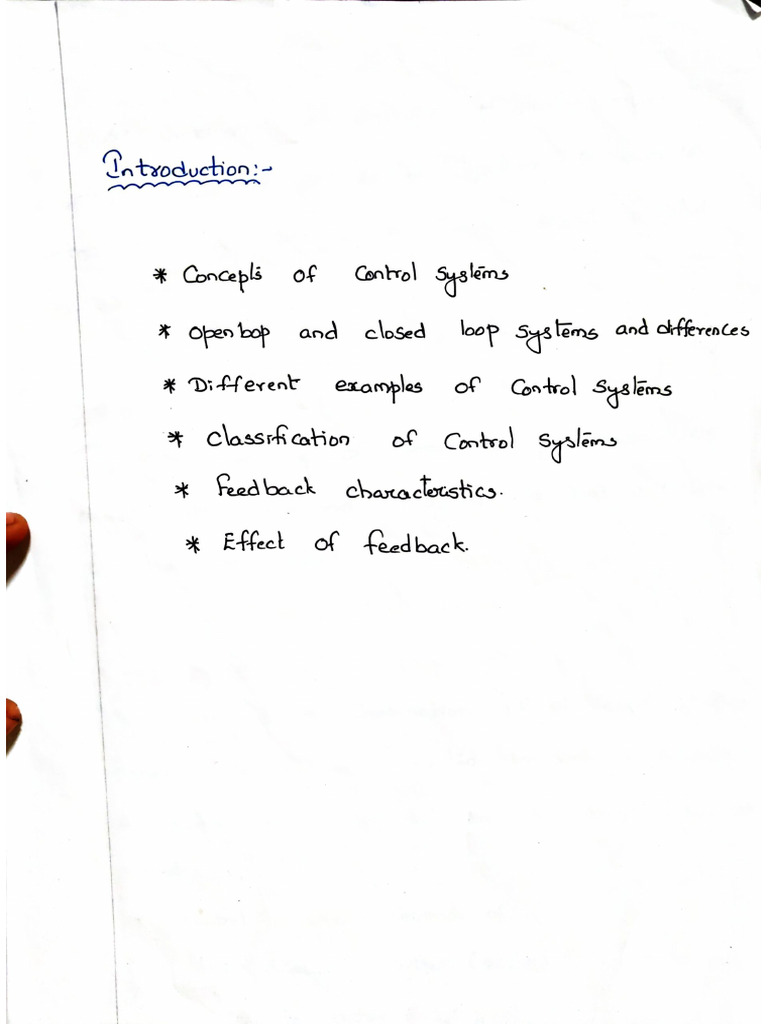 Introduction:-
* Concepts of Control Systems
* Open loop and closed loop systems and differences
* Different examples of Control Systems
* Classification of Control Systems
* Feedback characteristics.
* Effect of feedback.